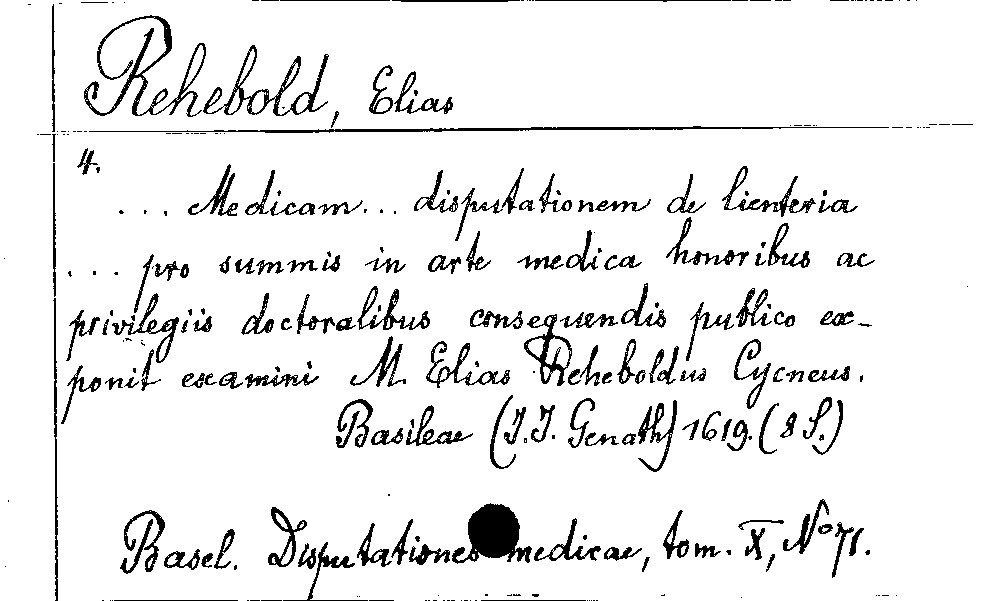 Rehebold, Elias
4.
... Medicam ... disputationem de lienteria
... pro summis in arte medica honoribus ac
privilegiis doctoralibus consequendis publico ex-
ponit examini M. Elias Reheboldus Cycneus.
Basileae (J. J. Genath) 1619. (8 S.)
Basel. Disputationes medicae, tom. X, No 71.